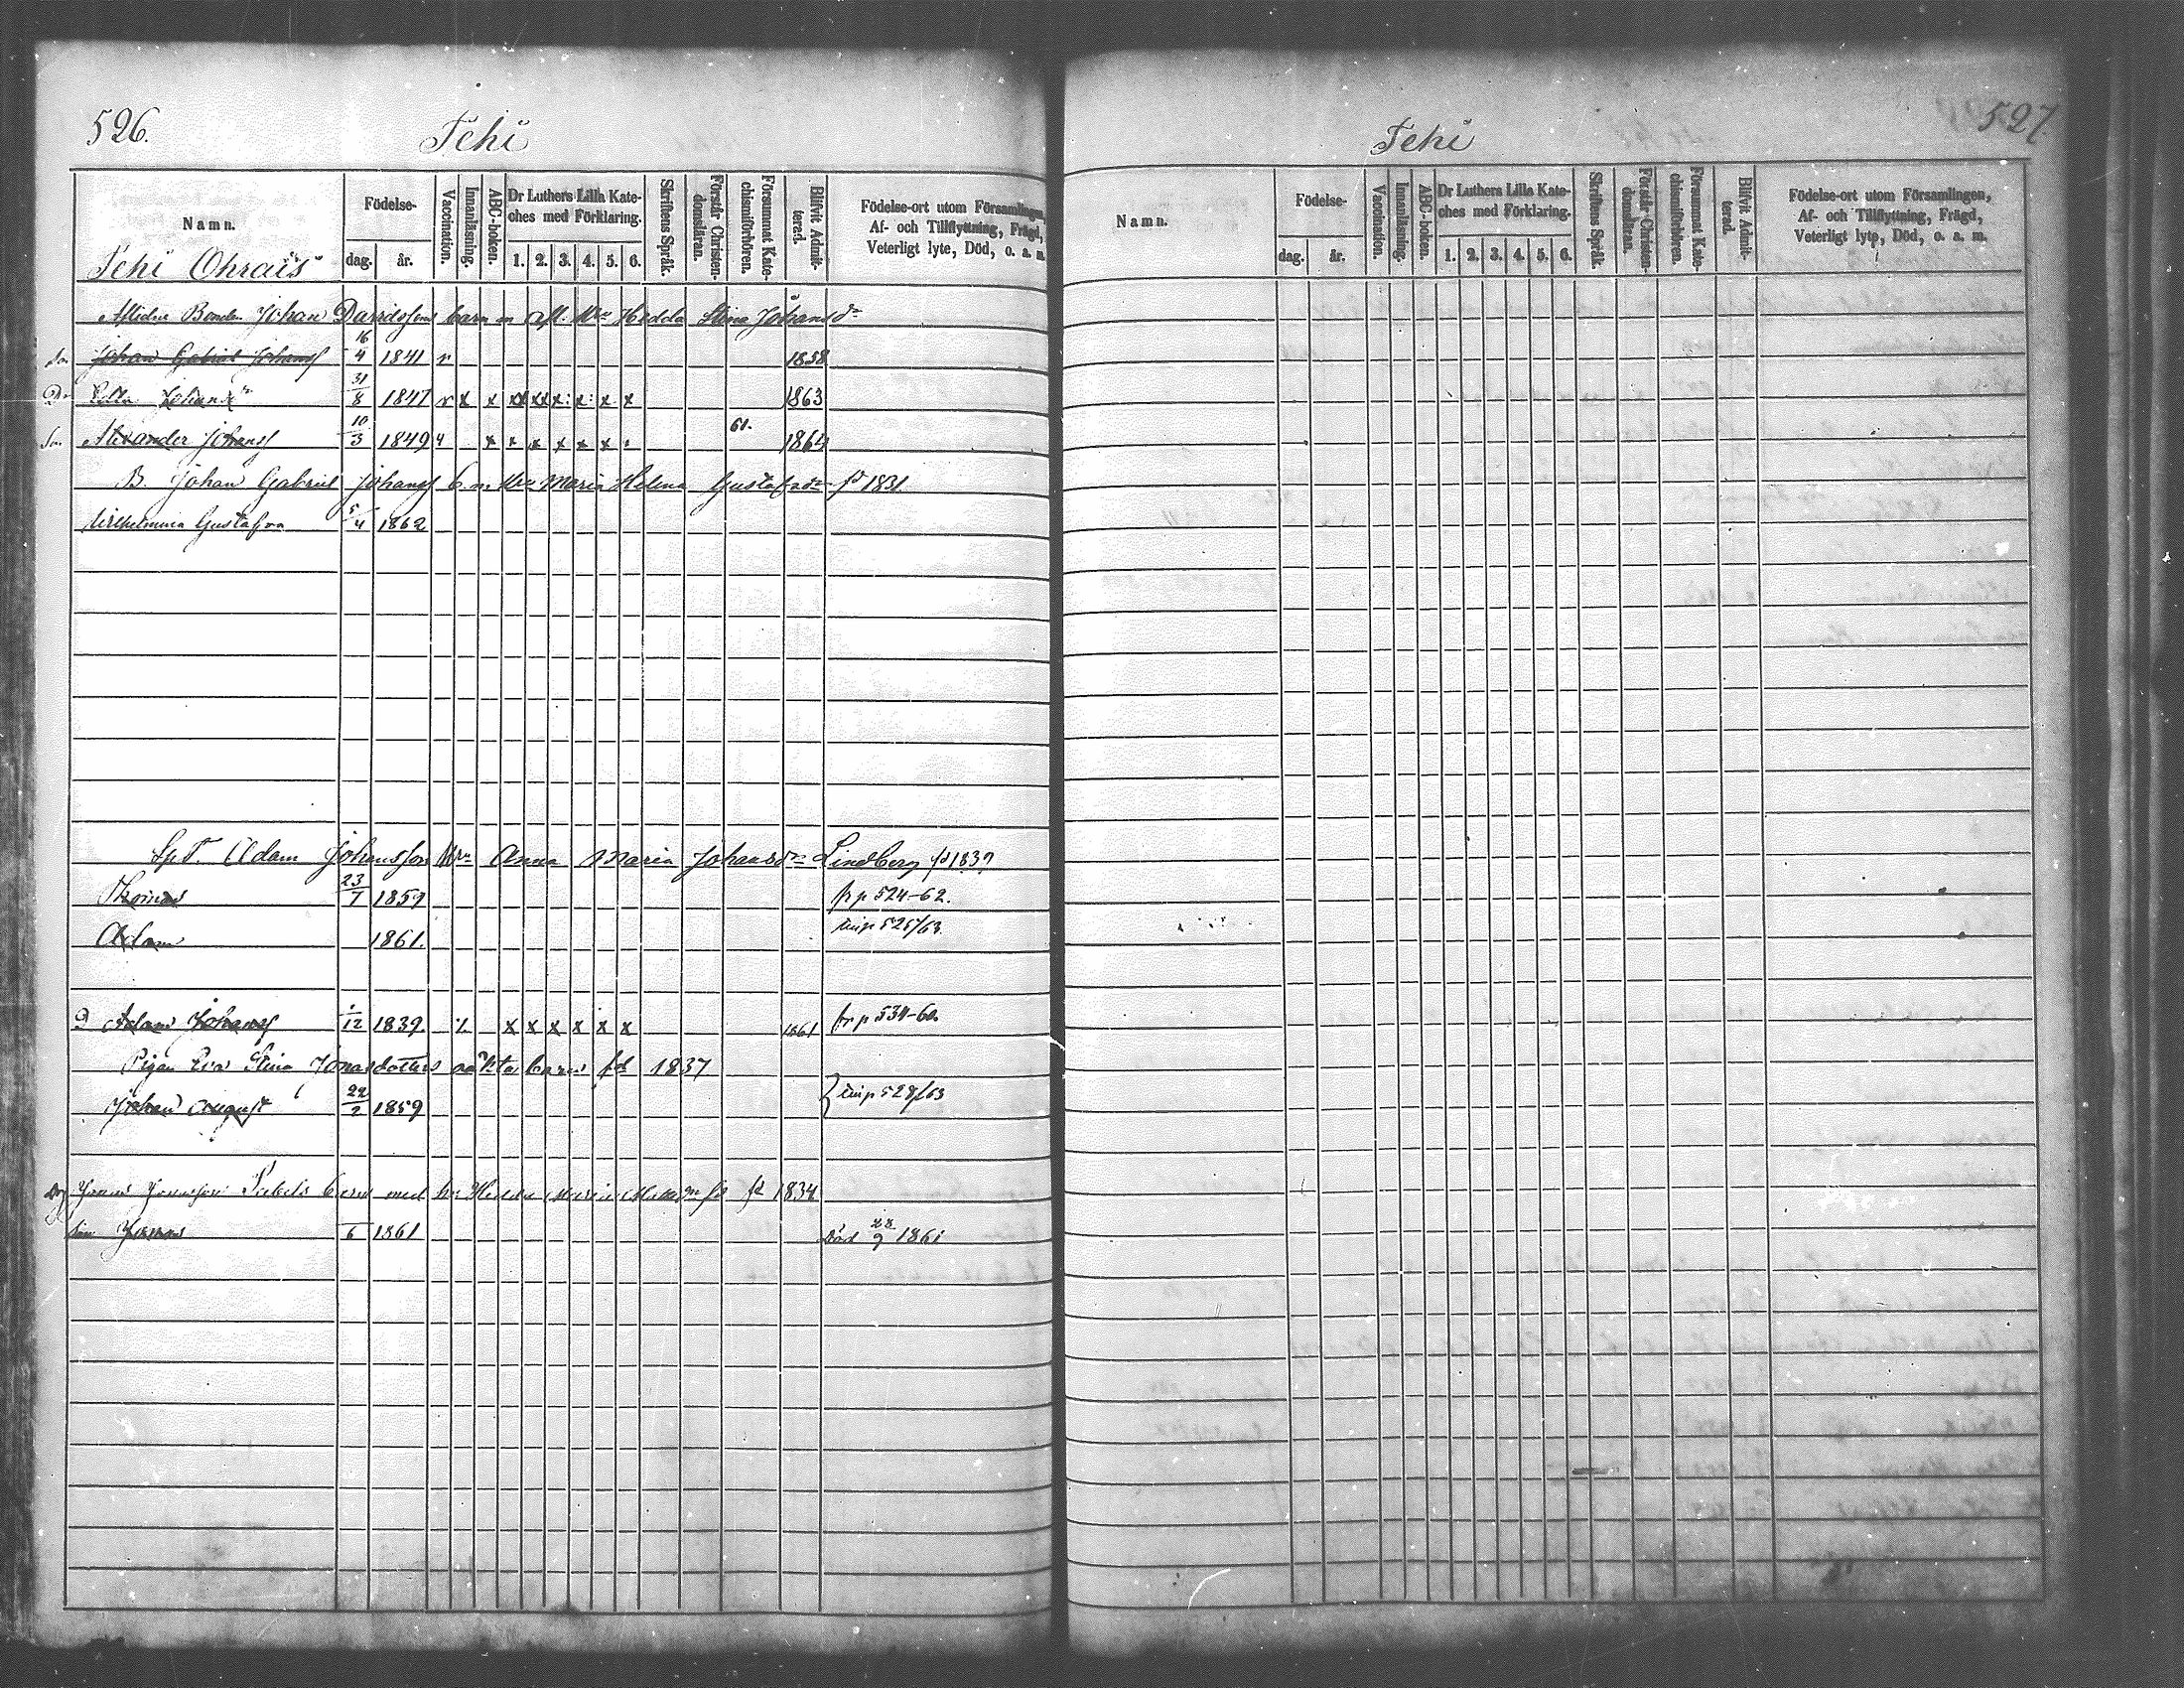 526.
Tehi
Namn.
Födelse-
dag.
år.
Vaccination.
Innanläsning.
ABC-boken.
Dr Luthers Lilla Kate-
ches med Förklaring.
1. 2. 3. 4. 5. 6.
Skriftens Språk.
Förstår Christen-
domsläran.
Försummat Kate-
chismiförhören.
Blifvit Admit-
terad.
Födelse-ort utom Församlingen,
Af- och Tillflyttning, Frägd,
Veterligt lyte, Död, o. a. m.
Tehi Ohrais
Aflidne Bonden Johan Davidssons barn m afl. Hru Hedda Stina Johansdr
Son Johan Gabriel Johanss 16/4 1841 v 1858
Dr Johansdr 31/8 1847 v x x xx xx x: x: x x 1863
Son Alexander Johanss 10/3 1849 x x x x x x 61. 1864
B. Johan Gabriel Johanss b. m. Hru Maria Helena Gustafsdr fd 1831.
Wilhelmina Gustafva 5/4 1862
Sp.T. Adam Johansson Hru Anna Maria Johansdr Lindberg fd 1839
Thomas 23/7 1859 fr p 524-62.
Adam 1861. in p 525/63.
D Adam Johanss 1/12 1839. x x x x x x 1861 fr p 534-60.
Pigan Eva Stina Jonasdotters oäkta barn fd 1837
Johan August 22/2 1859 in p 528/63
Jonas Jonasson barn med h. Hedda Maria fd 1834
Son Jonas /6 1861 Död 28/9 1861
Tehi
527.
Namn.
Födelse-
dag.
år.
Vaccination.
Innanläsning.
ABC-boken.
Dr Luthers Lilla Kate-
ches med Förklaring.
1. 2. 3. 4. 5. 6.
Skriftens Språk.
Förstår Christen-
domsläran.
Försummat Kate-
chismiförhören.
Blifvit Admit-
terad.
Födelse-ort utom Församlingen,
Af- och Tillflyttning, Frägd,
Veterligt lyte, Död, o. a. m.